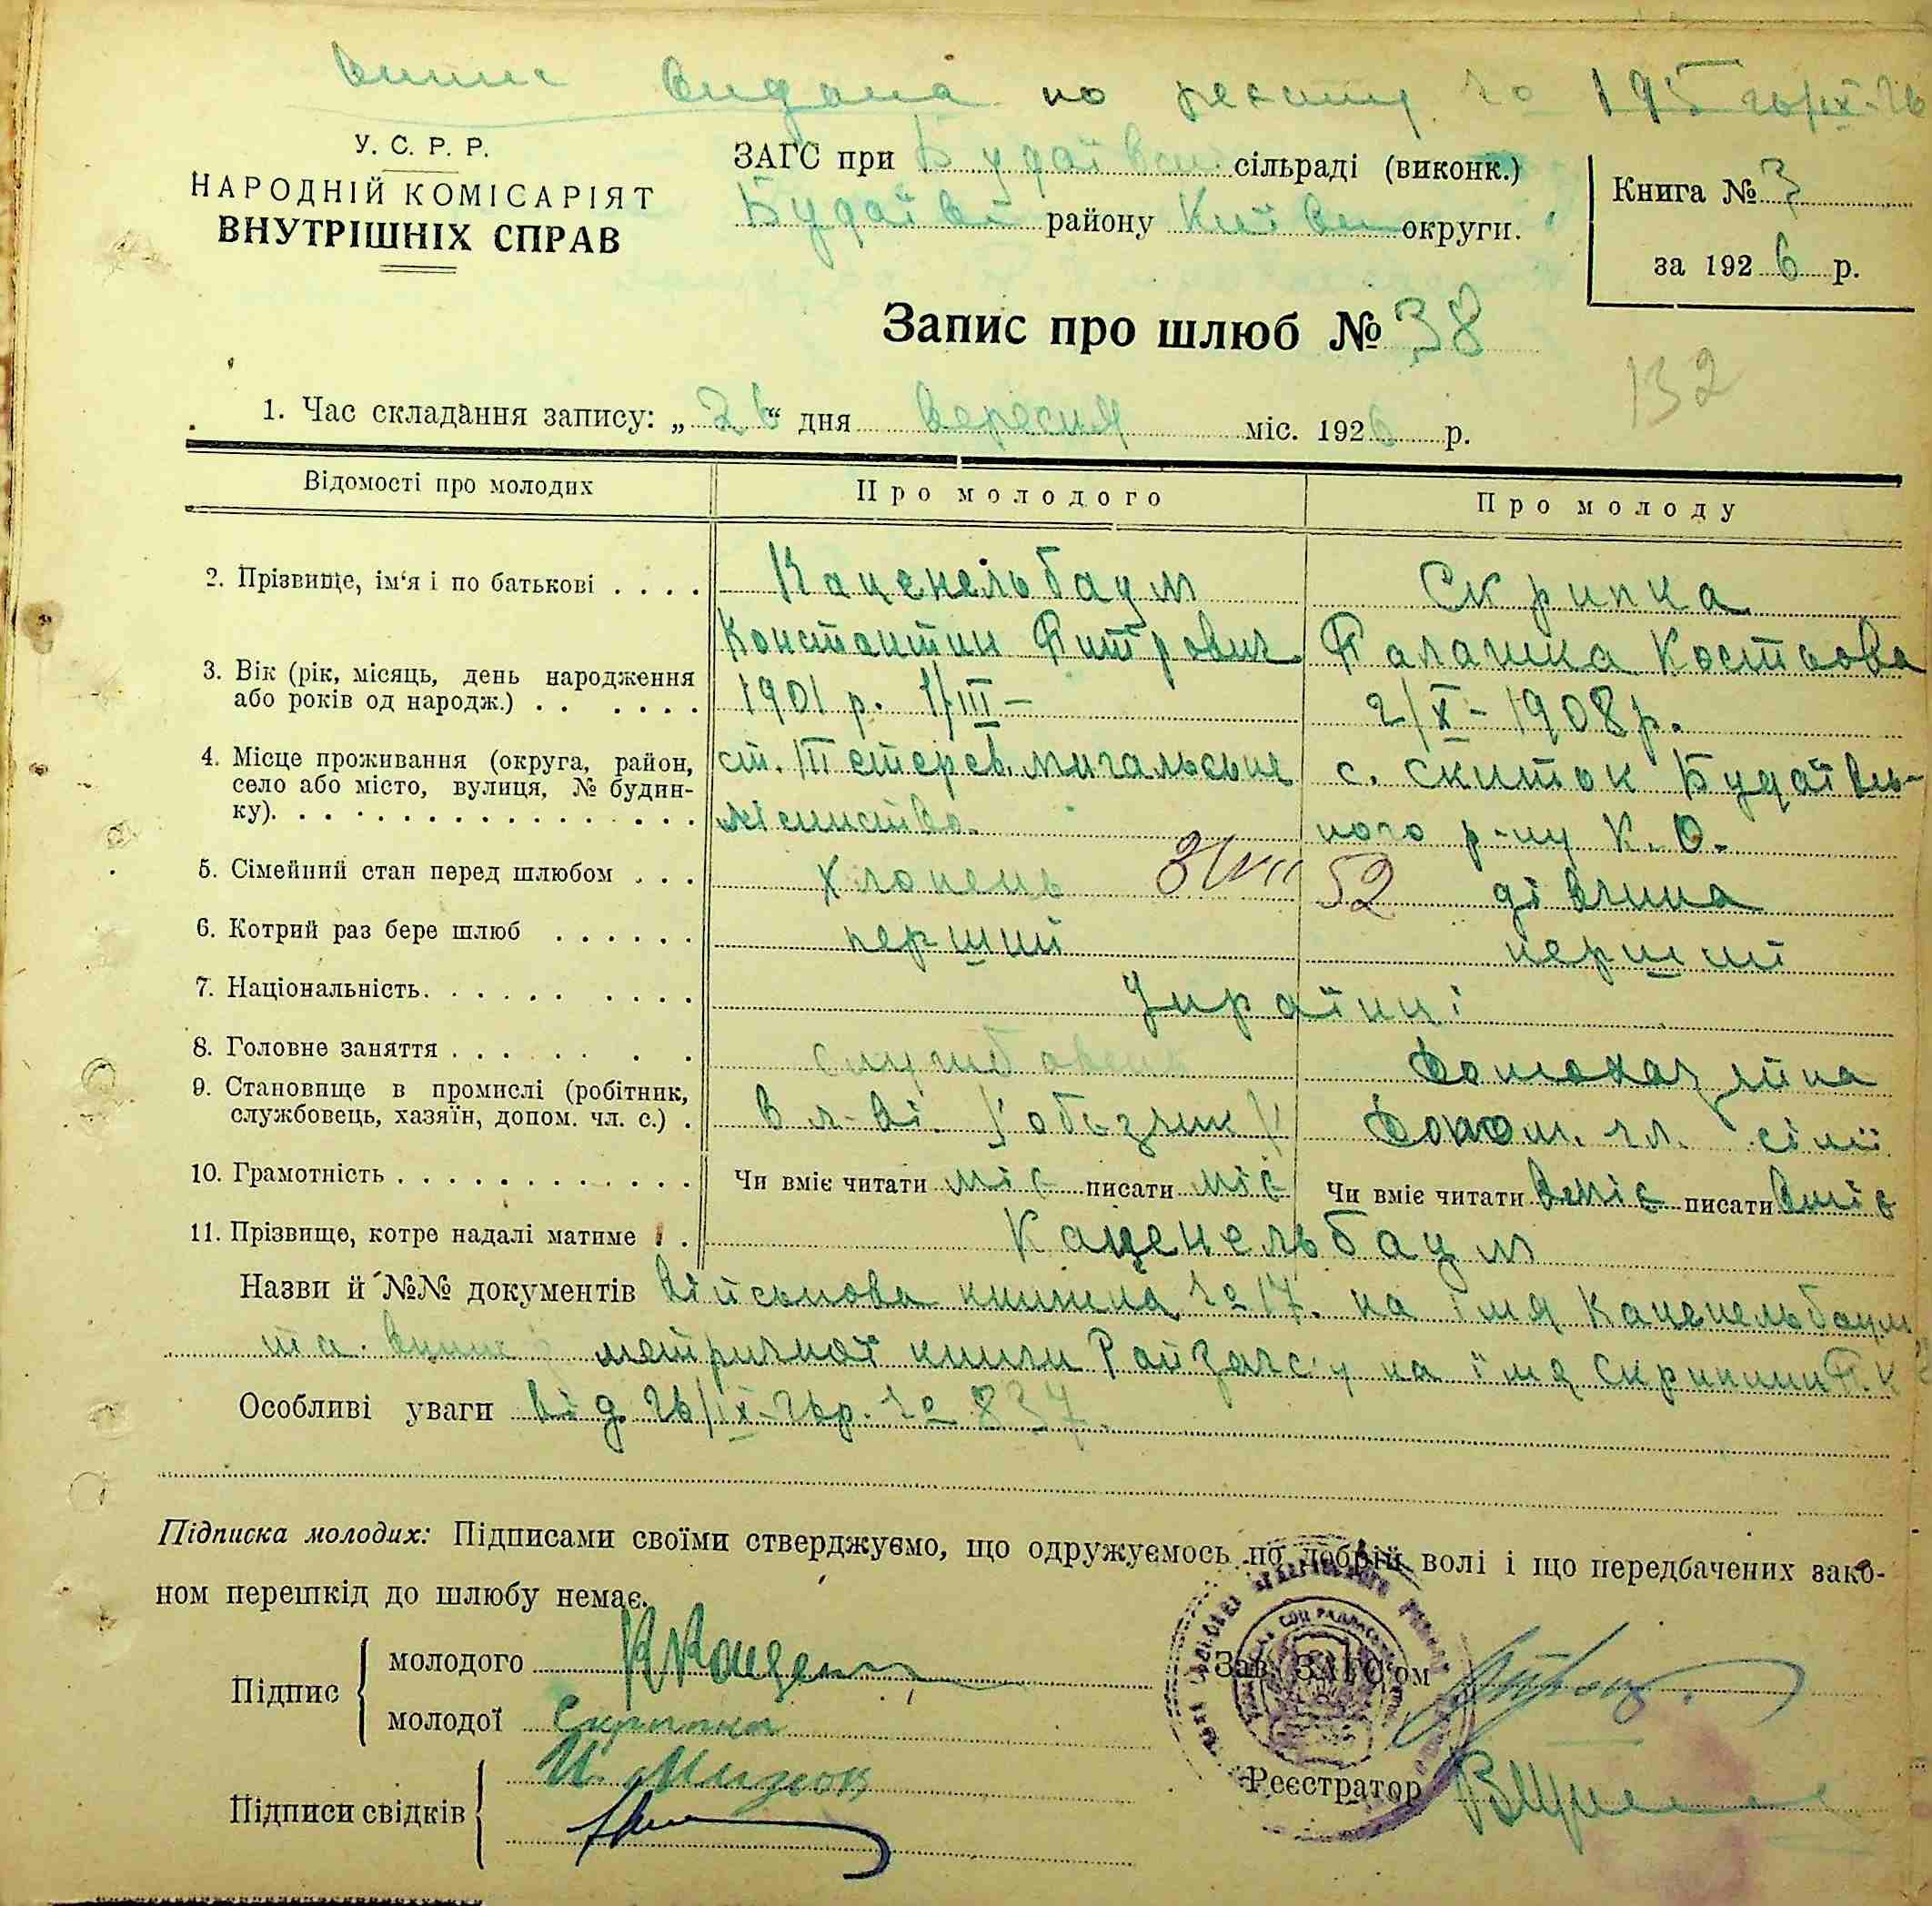 видана по реєстру № 195 26/IX-26
У. С. Р. Р.
НАРОДНІЙ КОМІСАРІЯТ
ВНУТРІШНІХ СПРАВ
ЗАГС при Будаївськ сільраді (виконк.)
Будаївськ району Київськ округи.
Книга № 3
за 1926 р.
Запис про шлюб № 38
132
1. Час складання запису: „26“ дня вересня міс. 1926 р.
Відомості про молодих Про молодого Про молоду
2. Прізвище, ім‘я і по батькові . . . . Каценельбаум Скрипка
Константин Питрович Палашка Костьова
3. Вік (рік, місяць, день народження
або років од народж.) . . . . . . 1901 р. 1/III – 2/X – 1908 р.
4. Місце проживання (округа, район,
село або місто, вулиця, № будин-
ку). . . . . . . . . . . . . . . . ст. Тетерев. лісництво. с. Скиток Будаївсь-
кого р-ну К. О.
5. Сімейний стан перед шлюбом . . . хлопець 3/VII 52 дівчина
6. Котрий раз бере шлюб . . . . . . перший перший
7. Національність. . . . . . . . . . Українці
8. Головне заняття . . . . . . . службовець Домохазяйка
9. Становище в промислі (робітник,
службовець, хазяїн, допом. чл. с.) . в л-ві. /обьєзчик/ Допом. чл. сімї
10. Грамотність . . . . . . . . . . . . Чи вміє читати міє писати міє Чи вміє читати вміє писати вміє
11. Прізвище, котре надалі матиме . . Каценельбаум
Назви й №№ документів Військова книжка № 17. на імя Каценельбаум
та. метричної книги Райзагсу на імя Скрипки П. К
Особливі уваги від 26/IX-26р. № 837.
Підписка молодих: Підписами своїми стверджуємо, що одружуємось по добрій волі і що передбачених зако-
ном перешкід до шлюбу немає.
Підпис
молодого К Кацен
молодої Скрипка
Зав. ЗАГС‘ом
Підписи свідків
Реєстратор